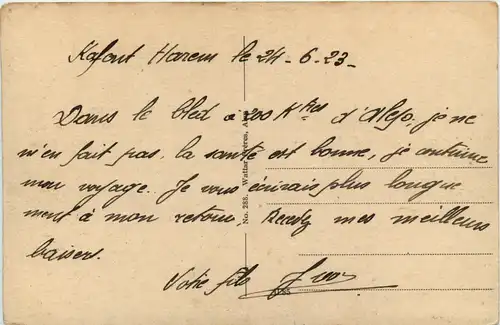 Harem le 24-6.23-
Dans le bled à 200 Ktres d'Alep, je ne
m'en fait pas, la santé est bonne, je continue
mon voyage. Je vous écrirais plus longue
ment à mon retour, Recevez mes meilleurs
baisers.
Votre fils
No. 288. Wattar Frères,